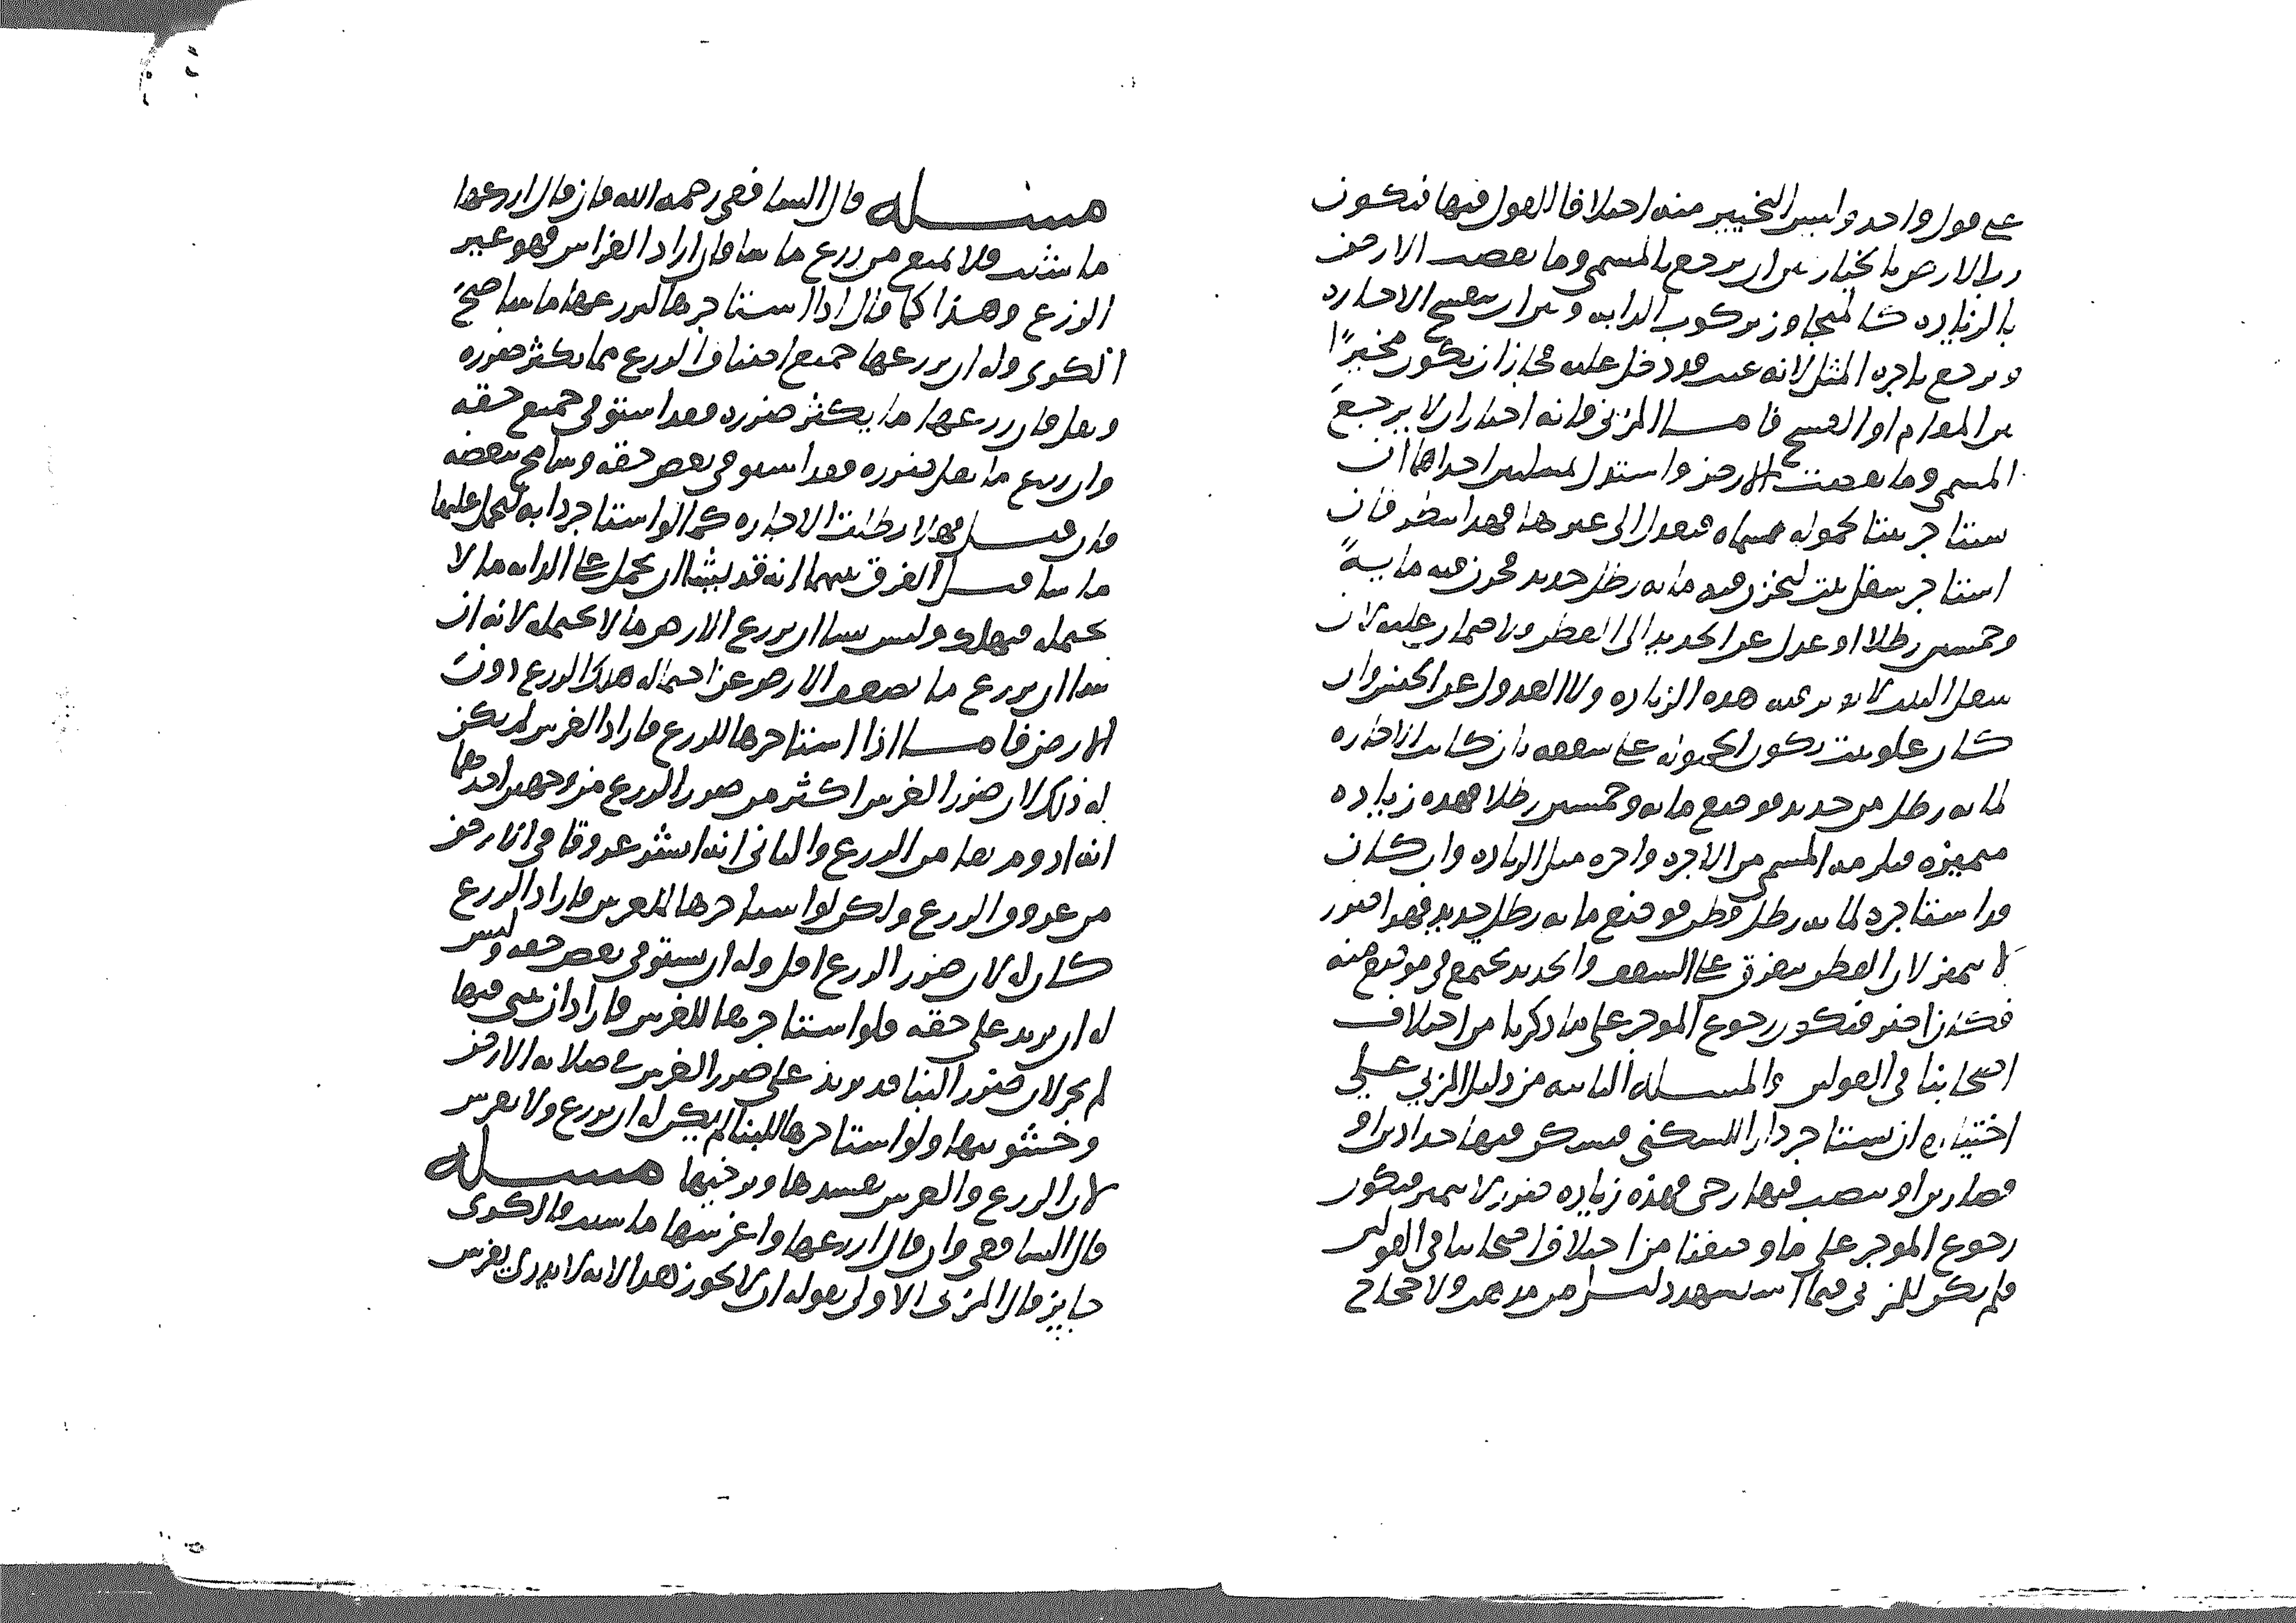 على قول واحد وليس التخيير منه اختلافا للقول فيها فيكون
رب الارض بالخيار بين ان يرجع بالمسمى وما نقصت الارض
بالزيادة كالمتجاوز بركوب الدابة وبين ان يفسخ الاجارة
ويرجع باجرة المثل لانه عيب قد دخل عليه فجاز ان يكون مخيرًا
بين المقام او الفسخ فاما المزني فانه اختار ان لا يرجع
المسمى وما نقصت الارض واستدل بمسلتين احداهما ان
يستاجر بيتا لحمولة مسماه فيعدل الى غيرها فهذا ينظر فان
استاجر سفل بيت ليخزن فيه مايه رطل حديد فخزن فيه مايةً
وخمسين رطلا او عدل عن الحديد الى القطن فلا ضمان عليه لان
سفل البيت لا يوثر فيه هذه الزيادة ولا العدول عن الجنس وان
كان علو بيت يكون الحمولة على سقفه فان كانت الاجارة
لمايه رطل من حديد فوضع مايه وخمسين رطلا فهذه زيادة
متميزة فيلزمه المسمى من الاجرة واجرة مثل الزيادة وان كان
قد استاجره لمايه رطل قطن فوضع مايه رطل حديد فهذا ضرر
لا يتميز لان القطن يتفرق على السقف والحديد يجتمع في موضع منه
فكان اضر فيكون رجوع الموجر على ما ذكرنا من اختلاف
اصحابنا في القولين والمسله الثانيه من دليل المزني على
اختياره ان يستاجر دارا للسكنى فيسكن فيها حدادين او
قصارين او ينصب فيها رحى فهذه زيادة ضرر لا يتميز فيكون
رجوع الموجر على ما وصفنا من اختلاف اصحابنا في القولين
فلم يكن للمزني فيما استشهد دليل من مذهب ولا حجاج
مسله قال الشافعي رحمه الله فان قال ازرعها
ما شئت فلا يمنع من زرع ما شا فان اراد الغراس فهو غير
الزرع وهذا كما قال اذا استاجرها ليزرعها ما شا صحَّ
الكرى وله ان يزرعها جميع اصناف الزرع مما يكثر ضرره
ويقل فان زرعها ما يكثر ضرره فقد استوفى جميع حقه
وان زرع ما يقل ضرره فقد استوفى بعض حقه وسامح ببعضه
فان قيل فهلا بطلت الاجارة كما لو استاجر دابه ليحمل عليها
ما شا قيل الفرق بينهما انه قد يشا ان يحمل على الدابه ما لا
يحتمله فيهلك وليس يشا ان يزرع الارض ما لا يحتمله لانه ان
شا ان يزرع ما تضعف الارض عن احتماله هلك الزرع دون
الارض فاما اذا استاجرها للزرع فاراد الغرس لم يكن
له ذلك لان ضرر الغرس اكثر من ضرر الزرع من وجهين احدهما
انه ادوم بقا من الزرع والثاني انه انشر عروقا في الارض
من عروق الزرع ولكن لو استاجرها للغرس فاراد الزرع
كان له لان ضرر الزرع اقل وله ان يستوفي بعض حقه وليس
له ان يزيد على حقه فلو استاجرها للغرس فاراد ان يبني فيها
لم يجز لان ضرر البنا قد يزيد على ضرر الغرس في صلابه الارض
وخشونتها ولو استاجرها للبنا لم يكن له ان يزرع ولا يغرس
لان الزرع والغرس يفسدها ويرخيها مسله
قال الشافعي وان قال ازرعها واغرسها ما شيت فالكرى
جايز قال المزني الاولى بقوله ان لا يجوز هذا لانه لا يدري يغرس